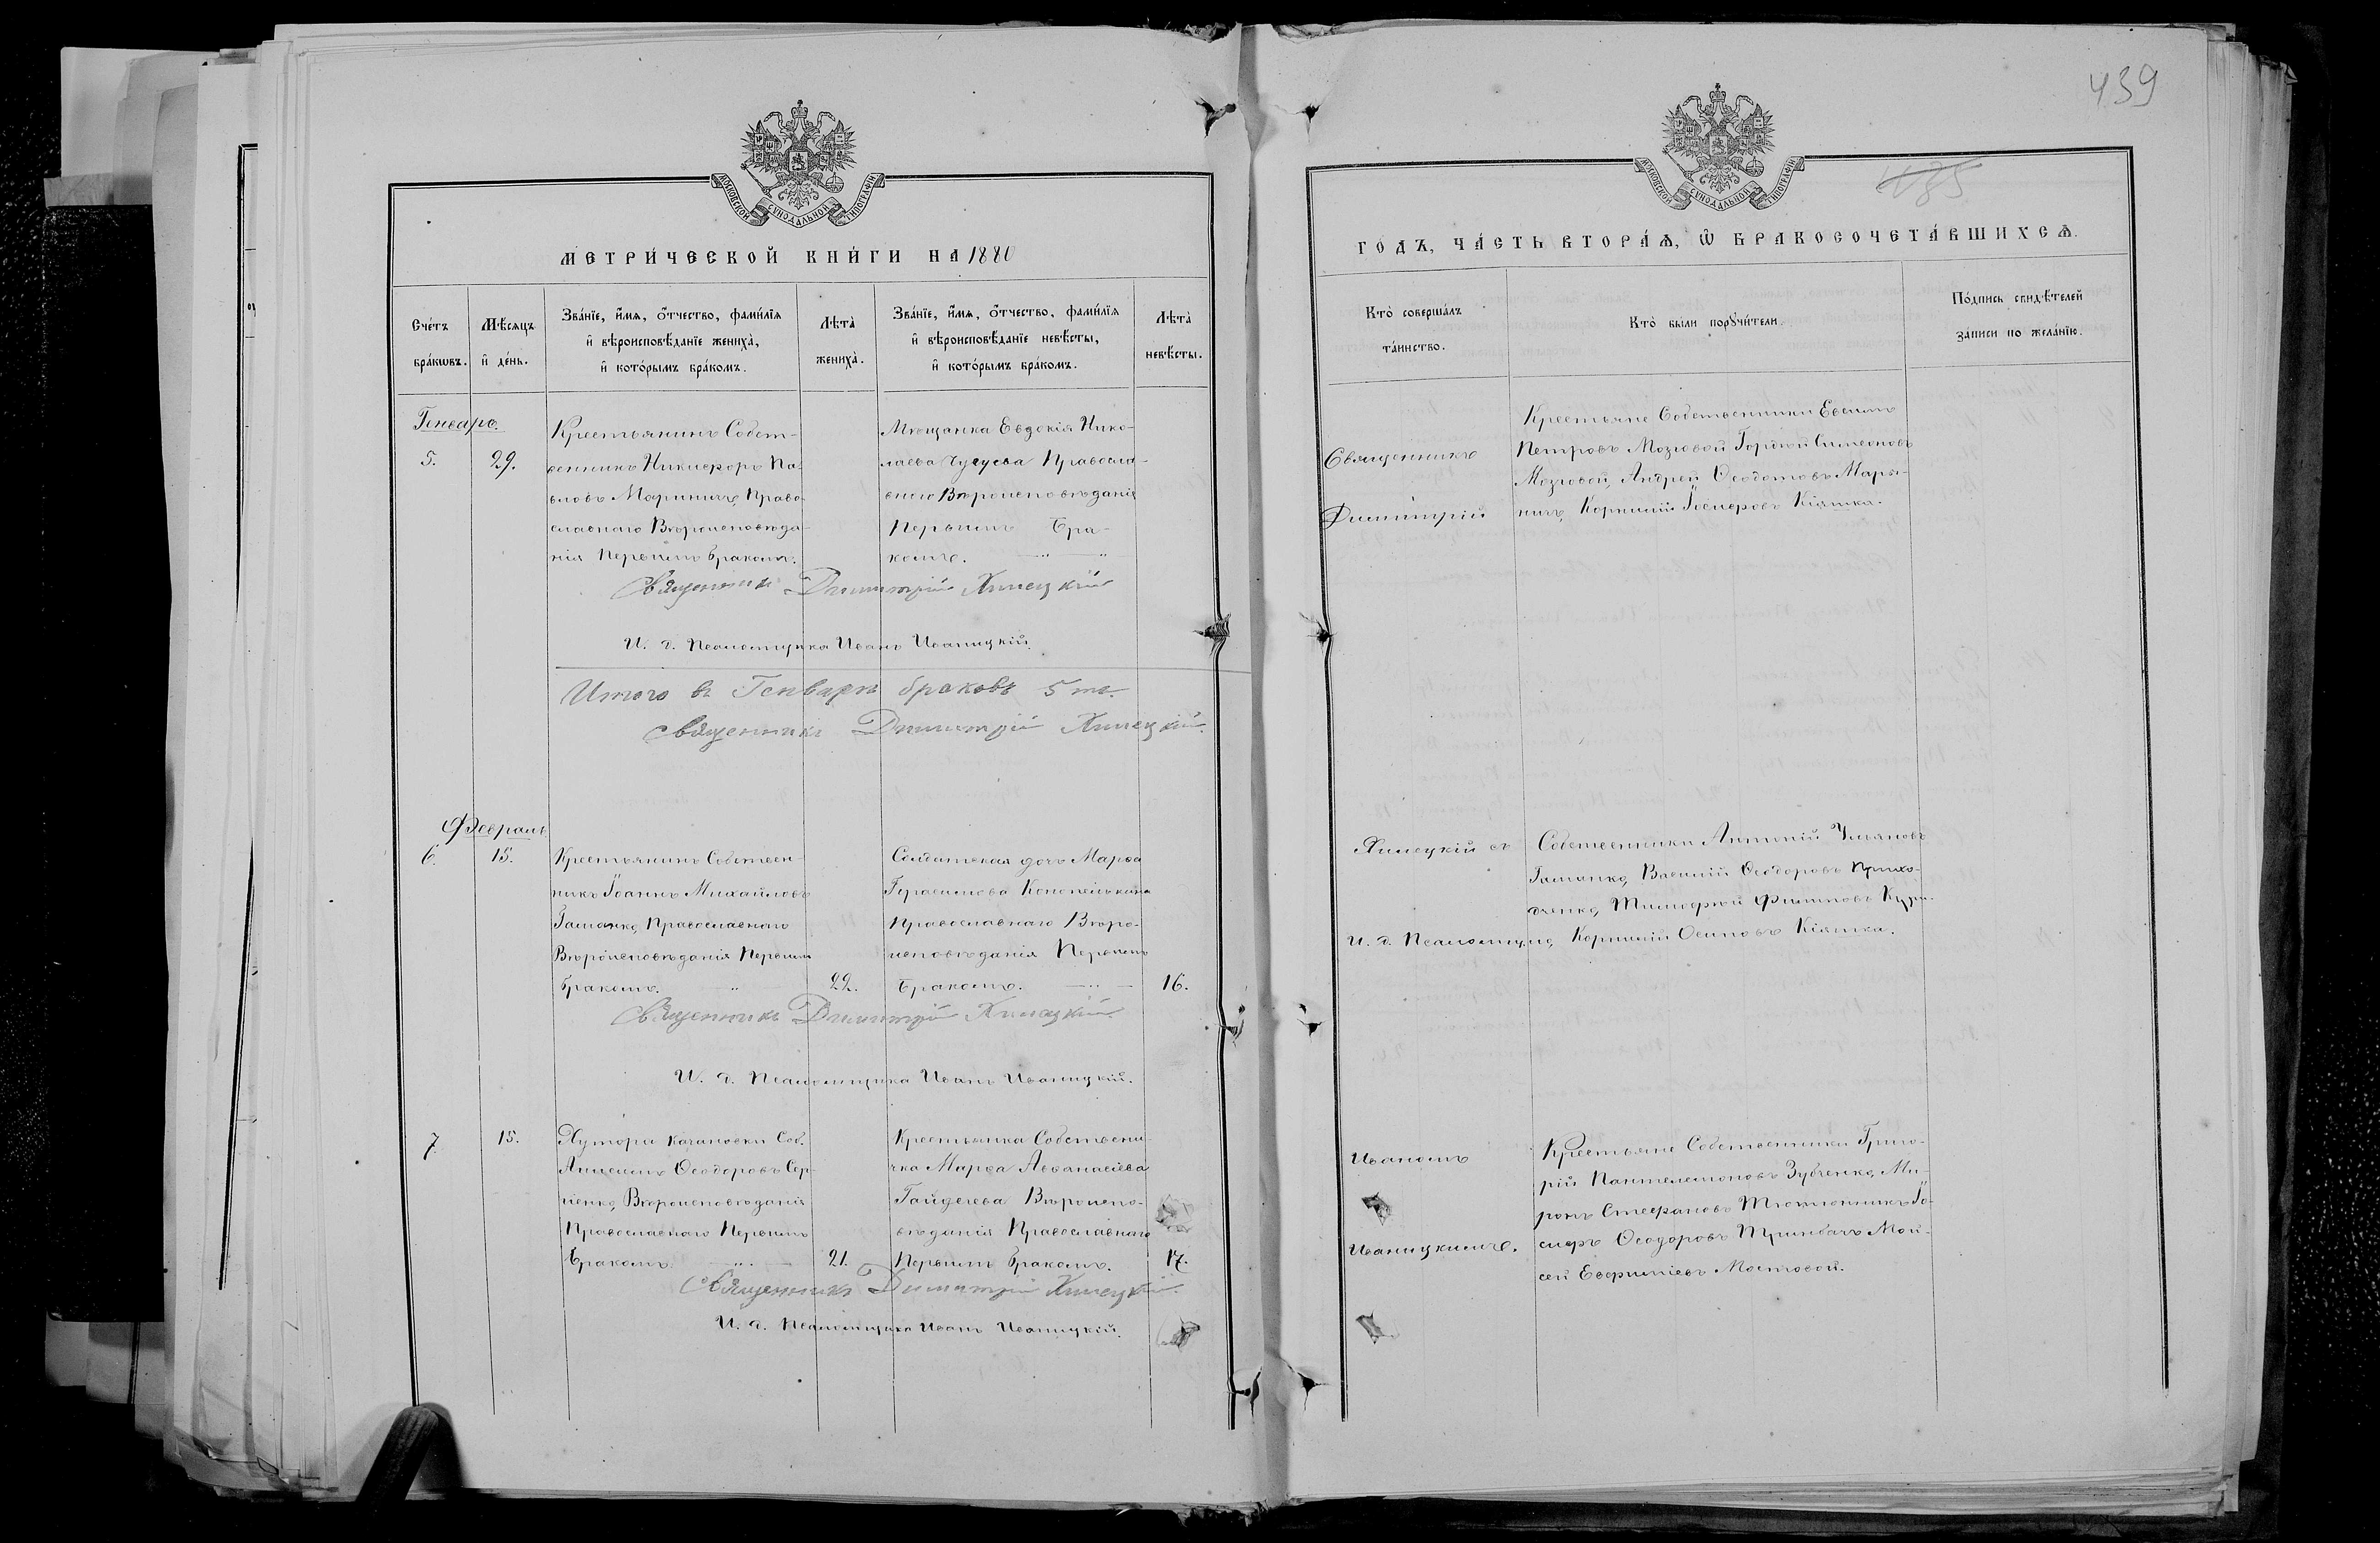 439
485
МОСКОВСКОЙ СѴНОДАЛЬНОЙ ТИПОГРАФІИ
МЕТРИ́ЧЕСКОЙ КНИ́ГИ НА 1880
Сче́тъ бра́кѡвъ.
Мѣ́сяцъ и҆ де́нь.
Зва́нїе, и҆́мѧ, ѻ҆́тчество, фами́лїѧ
и҆ вѣроисповѣ́данїе жениха̀,
и҆ кото́рымъ бра́комъ.
Лѣта̀ жениха̀.
Зва́нїе, и҆́мѧ, ѻ҆́тчество, фами́лїѧ
и҆ вѣроисповѣ́данїе невѣ́сты,
и҆ кото́рымъ бра́комъ.
Лѣта̀ невѣ́сты.
Генварь.
5.
29.
Крестьянинъ Собст-
венникъ Никифоръ Па-
вловъ Мариничъ, Право-
славнаго Вѣроисповѣда-
нія Первымъ бракомъ.
Мѣщанка Евдокія Нико-
лаева Правосла-
внаго Вѣроисповѣданія
Первымъ Бра-
комъ.
Священникъ Димитрій Хилецкій
И. д. Псаломщика Иванъ Иваницкій.
Итого въ Генварѣ браковъ 5ть.
Священникъ Димитрій Хилецкій.
Февраль
6.
15.
Крестьянинъ Собствен-
никъ Іоаннъ Михайловъ
Гаманко, Православнаго
Вѣроисповѣданія Первымъ
бракомъ.
22.
Солдатская дочь Марѳа
Герасимова Конопелькина
Православнаго Вѣро-
исповѣданія Первымъ
Бракомъ.
16.
Священникъ Димитрій Хилецкій.
И. д. Псаломщика Иванъ Иваницкій.
7.
15.
Хутора Качановки Соб.
Алексѣй Ѳеодоровъ Сер-
гіенко, Вѣроисповѣданія
Православнаго Первымъ
Бракомъ.
21.
Крестьянка Собствени-
чка Марѳа Аѳанасіева
Гайдегева Вѣроиспо-
вѣданія Православнаго
Первымъ бракомъ.
17.
Священникъ Димитрій Хилецкій.
И. д. Псаломщика Иванъ Иваницкій.
МОСКОВСКОЙ СѴНОДАЛЬНОЙ ТИПОГРАФІИ
ГО́ДЪ, ЧА́СТЬ ВТОРА́Ѧ, Ѽ БРАКОСОЧЕТА́ВШИХСѦ.
Кто̀ соверша́лъ та́инство.
Кто̀ бы́ли порꙋчи́тели.
По́дпись свидѣ́телей за́писи по жела́нїю.
Священникъ
Димитрій
Крестьяне Собственники Евѳимъ
Петровъ Мозговой Гордѣй Симеоновъ
Мозговой, Андрей Ѳеодотовъ Мари-
ничъ, Корнилій Іосифовъ Кіяшка.
Хилецкій съ
и. д. Псаломщ.
Собственники Антоній Ульяновъ
Гаманко, Василій Ѳеодоровъ Прихо-
дченко, Тимофей Филиповъ
Корнилій Осиповъ Кіяшка.
Иваномъ
Иваницкимъ.
Крестьяне Собственники Григо-
рій Пантелемоновъ Зубченко, Ми-
ронъ Стефановъ Тютюнникъ, Іо-
сифъ Ѳеодоровъ Трипбачъ Мои-
сей Евфиміевъ Мостовой.